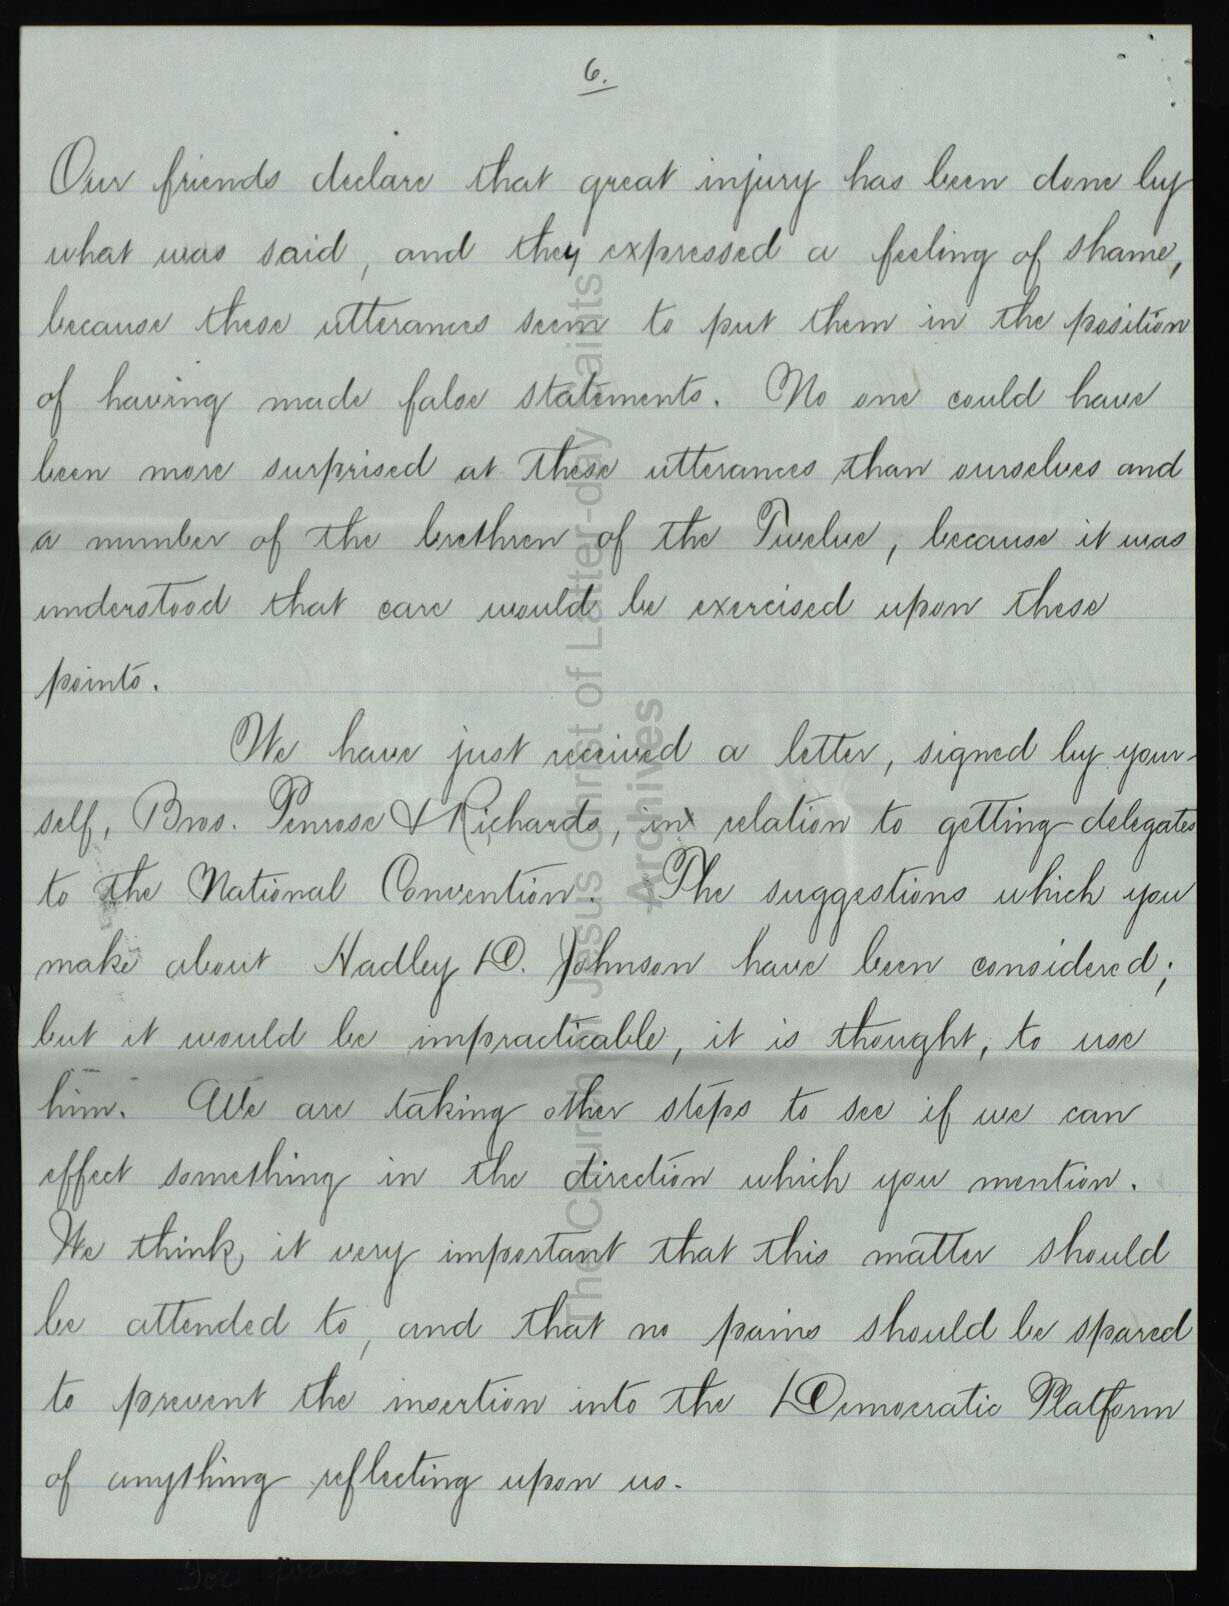 6.
Our friends declare that great injury has been done by
what was said, and they expressed a feeling of shame,
because these utterances seem to put them in the position
of having made false statements. No one could have
been more surprised at these utterances than ourselves and
a number of the brethren of the Twelve, because it was
understood that care would be exercised upon these
points.
We have just received a letter, signed by your-
self, Bros. Penrose & Richards, in relation to getting delegates
to the National Convention. The suggestions which you
make about Hadley D. Johnson have been considered;
but it would be impracticable, it is thought, to use
him. We are taking other steps to see if we can
effect something in the direction which you mention.
We think it very important that this matter should
be attended to, and that no pains should be spared
to prevent the insertion into the Democratic Platform
of anything reflecting upon us.
The Church of Jesus Christ of Latter-day Saints
Archives